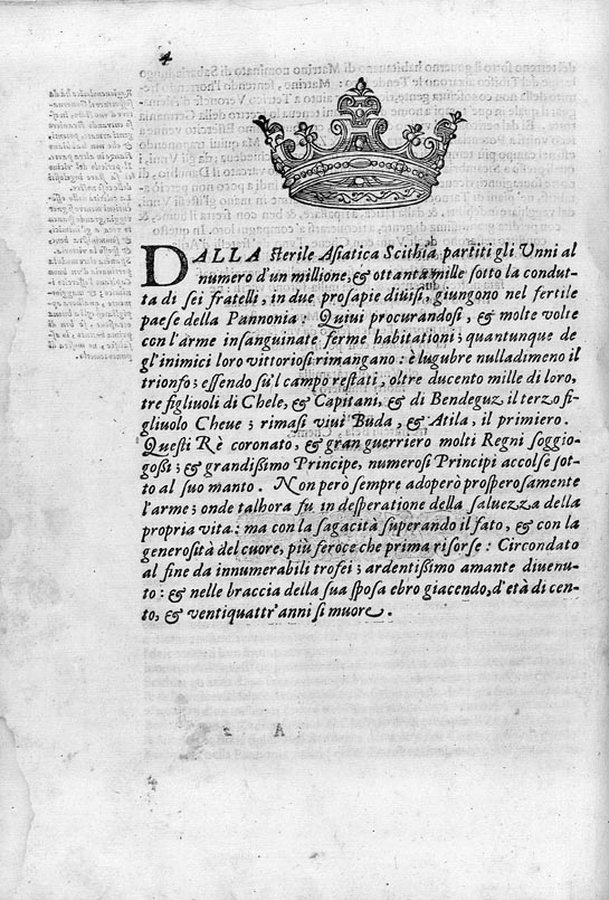 4
DALLA sterile Asiatica Scithia partiti gli Vnni al
numero d'un millione, & ottanta mille sotto la condut-
ta di sei fratelli, in due prosapie diuisi, giungono nel fertile
paese della Pannonia: Quiui procurandosi, & molte volte
con l'arme insanguinate ferme habitationi; quantunque de
gl'inimici loro vittoriosi rimangano: è lugubre nulladimeno il
trionfo; essendo su'l campo restati, oltre ducento mille di loro,
tre figliuoli di Chele, & Capitani, & di Bendeguz il terzo fi-
gliuolo Cheue; rimasi viui Buda, & Atila, il primiero.
Questi Rè coronato, & gran guerriero molti Regni soggio-
gossi; & grandissimo Principe, numerosi Principi accolse sot-
to al suo manto. Non però sempre adoperò prosperosamente
l'arme; onde talhora fu in desperatione della saluezza della
propria vita: ma con la sagacità superando il fato, & con la
generosità del cuore, più feroce che prima risorse: Circondato
al fine da innumerabili trofei; ardentissimo amante diuenu-
to: & nelle braccia della sua sposa ebro giacendo, d'età di cen-
to, & ventiquattr'anni si muore.